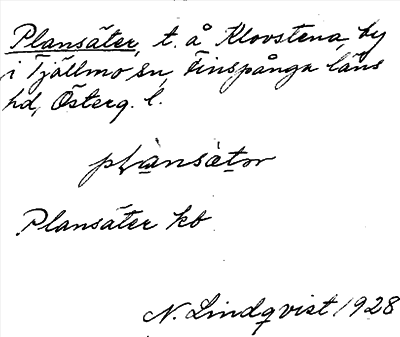 Plansäter, t. å Klovstena, by
i Tjällmo sn, Finspånga läns
hd, Österg. l.
plansätər
Plansäter kb
N. Lindqvist 1928